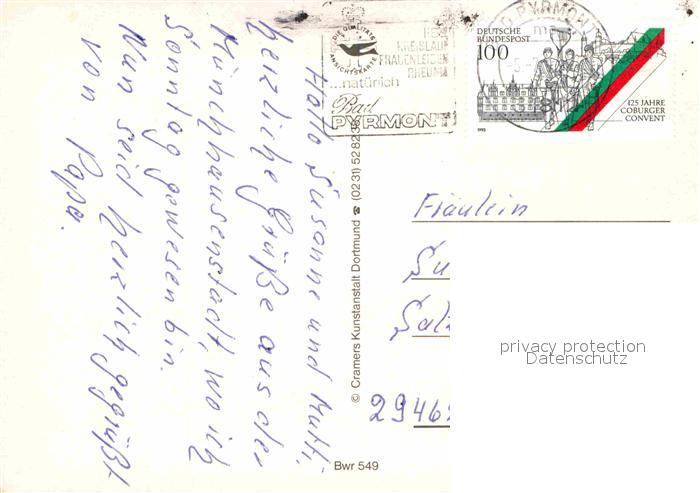 Hallo Susanne und Mutti,
herzliche Grüße aus der
Münchhausenstadt, wo ich
Sonntag gewesen bin.
Nun seid herzlich gegrüßt
von Papa.
DIE QUALITÄTS
ANSICHTSKARTE
HERZ
KREISLAUF
FRAUENLEIDEN
RHEUMA
...natürlich
Bad
PYRMONT
BAD PYRMONT
DEUTSCHE
BUNDESPOST
100
125 JAHRE
COBURGER
CONVENT
1993
© Cramers Kunstanstalt Dortmund ☎ (0231) 528236
Fräulein
Su
Salz
2946
privacy protection
Datenschutz
Bwr 549